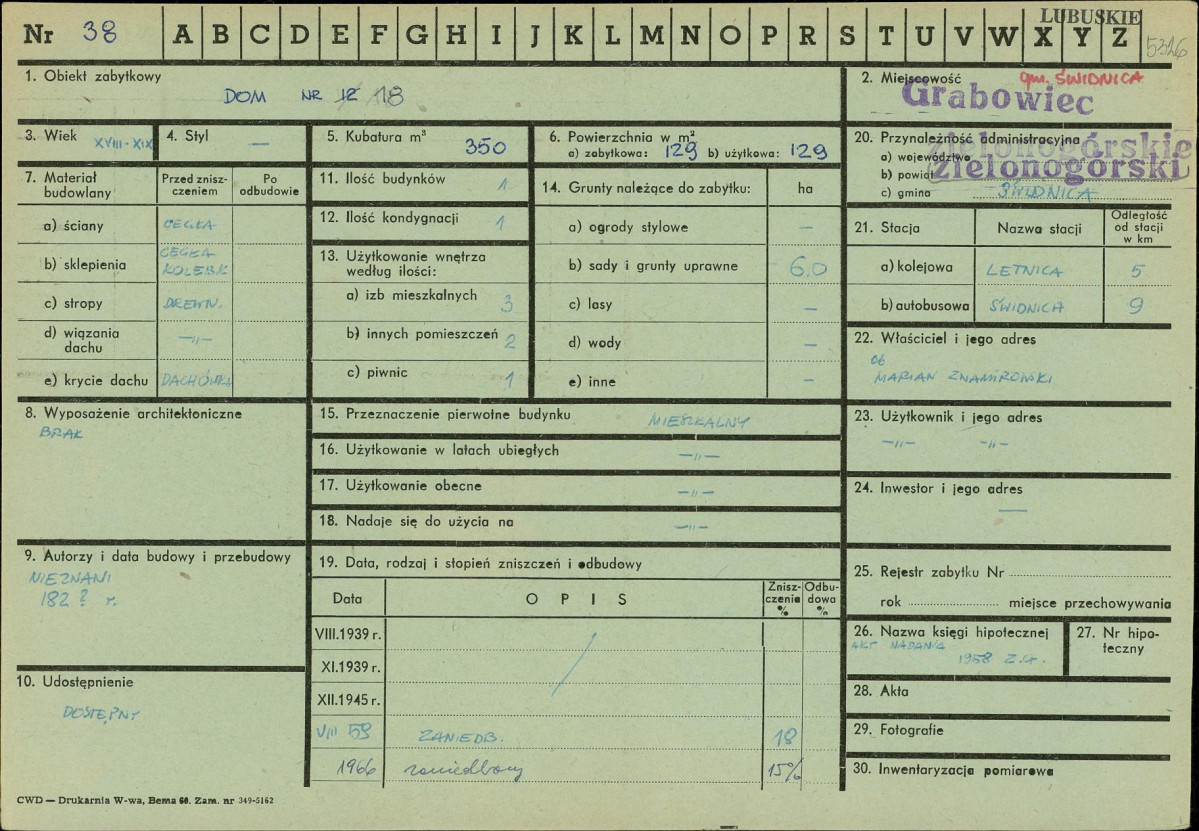 Nr 38 A B C D E F G H I J K L M N O P R S T U V W X Y Z
LUBUSKIE
5326
1. Obiekt zabytkowy
DOM NR 12 18
2. Miejscowość gm. ŚWIDNICA
Grabowiec
3. Wiek XVIII-XIX
4. Styl —
5. Kubatura m³ 350
6. Powierzchnia w m²
a) zabytkowa: 129 b) użytkowa: 129
20. Przynależność administracyjna
a) województwo zielonogórskie
b) powiat zielonogórski
c) gmina ŚWIDNICA
7. Materiał budowlany
Przed zniszczeniem
Po odbudowie
a) ściany CEGŁA
b) sklepienia CEGŁA
KOLEBK
c) stropy DREWN.
d) wiązania dachu —„—
e) krycie dachu DACHÓWKA
11. Ilość budynków 1
12. Ilość kondygnacji 1
13. Użytkowanie wnętrza
według ilości:
a) izb mieszkalnych 3
b) innych pomieszczeń 2
c) piwnic 1
14. Grunty należące do zabytku: ha
a) ogrody stylowe —
b) sady i grunty uprawne 6.0
c) lasy —
d) wody —
e) inne —
21. Stacja Nazwa stacji Odległość od stacji w km
a) kolejowa LETNICA 5
b) autobusowa ŚWIDNICA 9
22. Właściciel i jego adres
ob
MARIAN ZNAMIROWSKI
8. Wyposażenie architektoniczne
BRAK
15. Przeznaczenie pierwotne budynku MIESZKALNY
16. Użytkowanie w latach ubiegłych —„—
17. Użytkowanie obecne —„—
18. Nadaje się do użycia na —„—
23. Użytkownik i jego adres
—„— —„—
24. Inwestor i jego adres
—
9. Autorzy i data budowy i przebudowy
NIEZNANI
182? r.
19. Data, rodzaj i stopień zniszczeń i odbudowy
Data OPIS Zniszczenia % Odbudowa %
VIII.1939 r.
XI.1939 r.
XII.1945 r.
VIII 59 ZANIEDB. 18
1966 zaniedbany 15%
25. Rejestr zabytku Nr
rok miejsce przechowywania
26. Nazwa księgi hipotecznej
AKT NADANIA
1958 Z.G.
27. Nr hipoteczny
10. Udostępnienie
DOSTĘPNY
28. Akta
29. Fotografie
30. Inwentaryzacja pomiarowa
CWD — Drukarnia W-wa, Bema 60. Zam. nr 349-5162